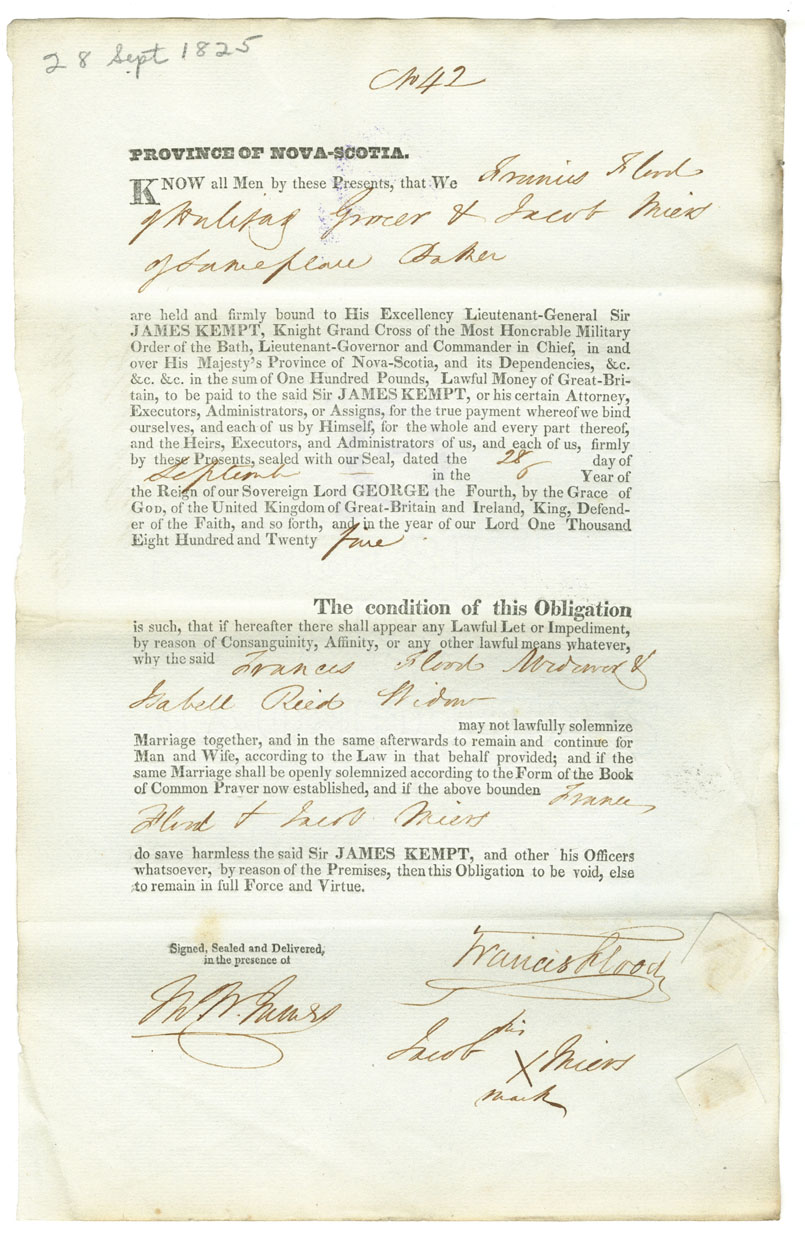 28 Sept 1825
No 42
PROVINCE OF NOVA-SCOTIA.
KNOW all Men by these Presents, that We Francis Flood
of Halifax Grocer & Jacob Miers
of same place Baker
are held and firmly bound to His Excellency Lieutenant-General Sir
JAMES KEMPT, Knight Grand Cross of the Most Honorable Military
Order of the Bath, Lieutenant-Governor and Commander in Chief, in and
over His Majesty's Province of Nova-Scotia, and its Dependencies, &c.
&c. &c. in the sum of One Hundred Pounds, Lawful Money of Great-Bri-
tain, to be paid to the said Sir JAMES KEMPT, or his certain Attorney,
Executors, Administrators, or Assigns, for the true payment whereof we bind
ourselves, and each of us by Himself, for the whole and every part thereof,
and the Heirs, Executors, and Administrators of us, and each of us, firmly
by these Presents, sealed with our Seal, dated the 28 day of
Septemb in the 6 Year of
the Reign of our Sovereign Lord GEORGE the Fourth, by the Grace of
GOD, of the United Kingdom of Great-Britain and Ireland, King, Defend-
er of the Faith, and so forth, and in the year of our Lord One Thousand
Eight Hundred and Twenty five
The condition of this Obligation
is such, that if hereafter there shall appear any Lawful Let or Impediment,
by reason of Consanguinity, Affinity, or any other lawful means whatever,
why the said Frances Flood Widower &
Isabell Ried Widow
may not lawfully solemnize
Marriage together, and in the same afterwards to remain and continue for
Man and Wife, according to the Law in that behalf provided; and if the
same Marriage shall be openly solemnized according to the Form of the Book
of Common Prayer now established, and if the above bounden Frances
Flood & Jacob Miers
do save harmless the said Sir JAMES KEMPT, and other his Officers
whatsoever, by reason of the Premises, then this Obligation to be void, else
to remain in full Force and Virtue.
Signed, Sealed and Delivered,
in the presence of
Francis Flood
Jacob his X Miers
mark